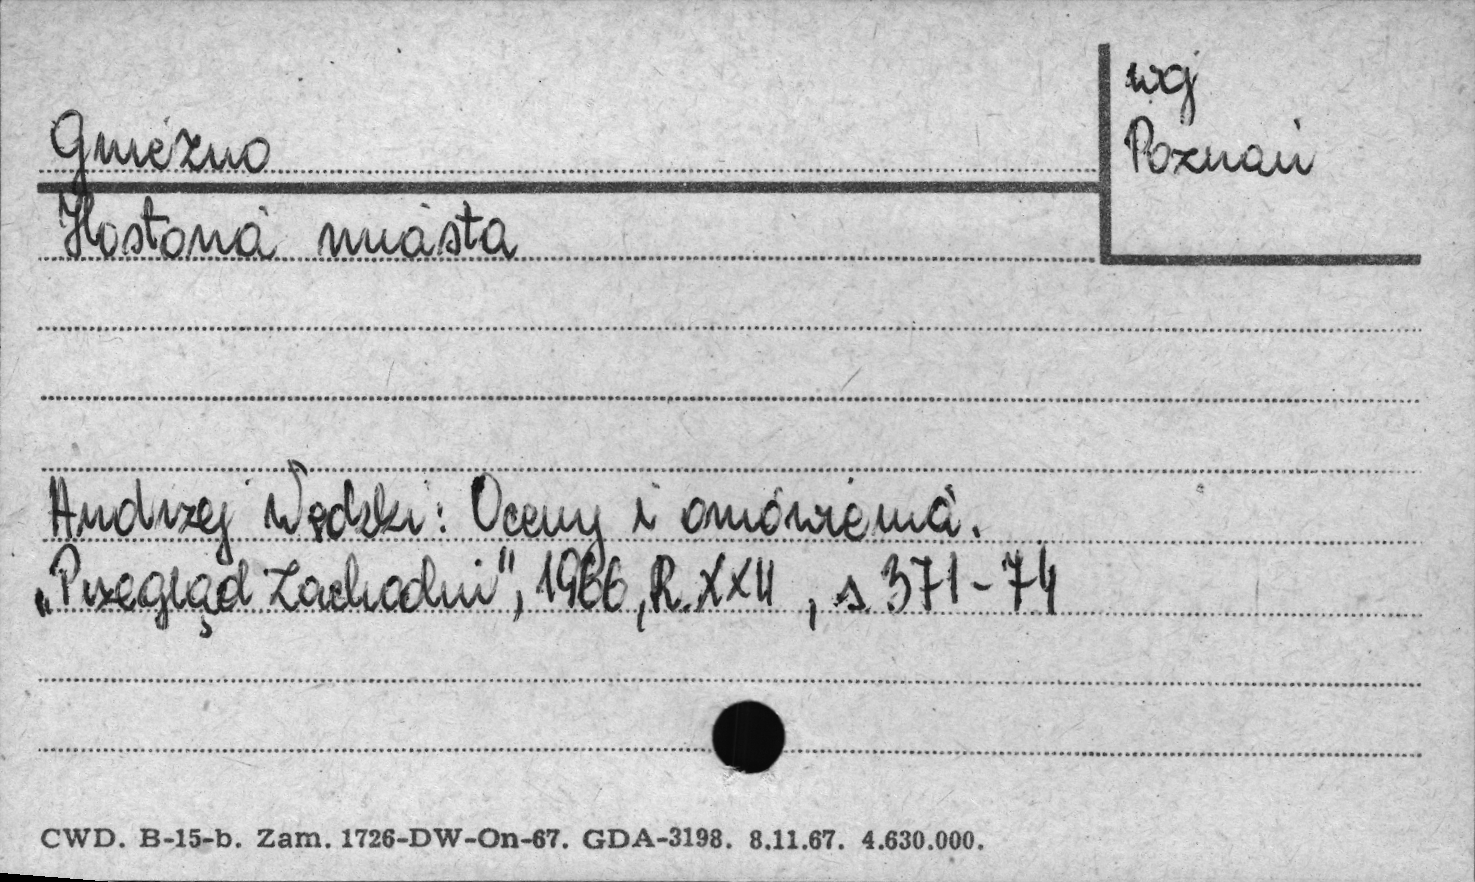 Gniezno
wg
Poznań
Historia miasta
Andrzej Wędzki: Oceny i omówienia.
„Przegląd Zachodni", 1966, R. XXII, s 371-74
CWD. B-15-b. Zam. 1726-DW-On-67. GDA-3198. 8.11.67. 4.630.000.